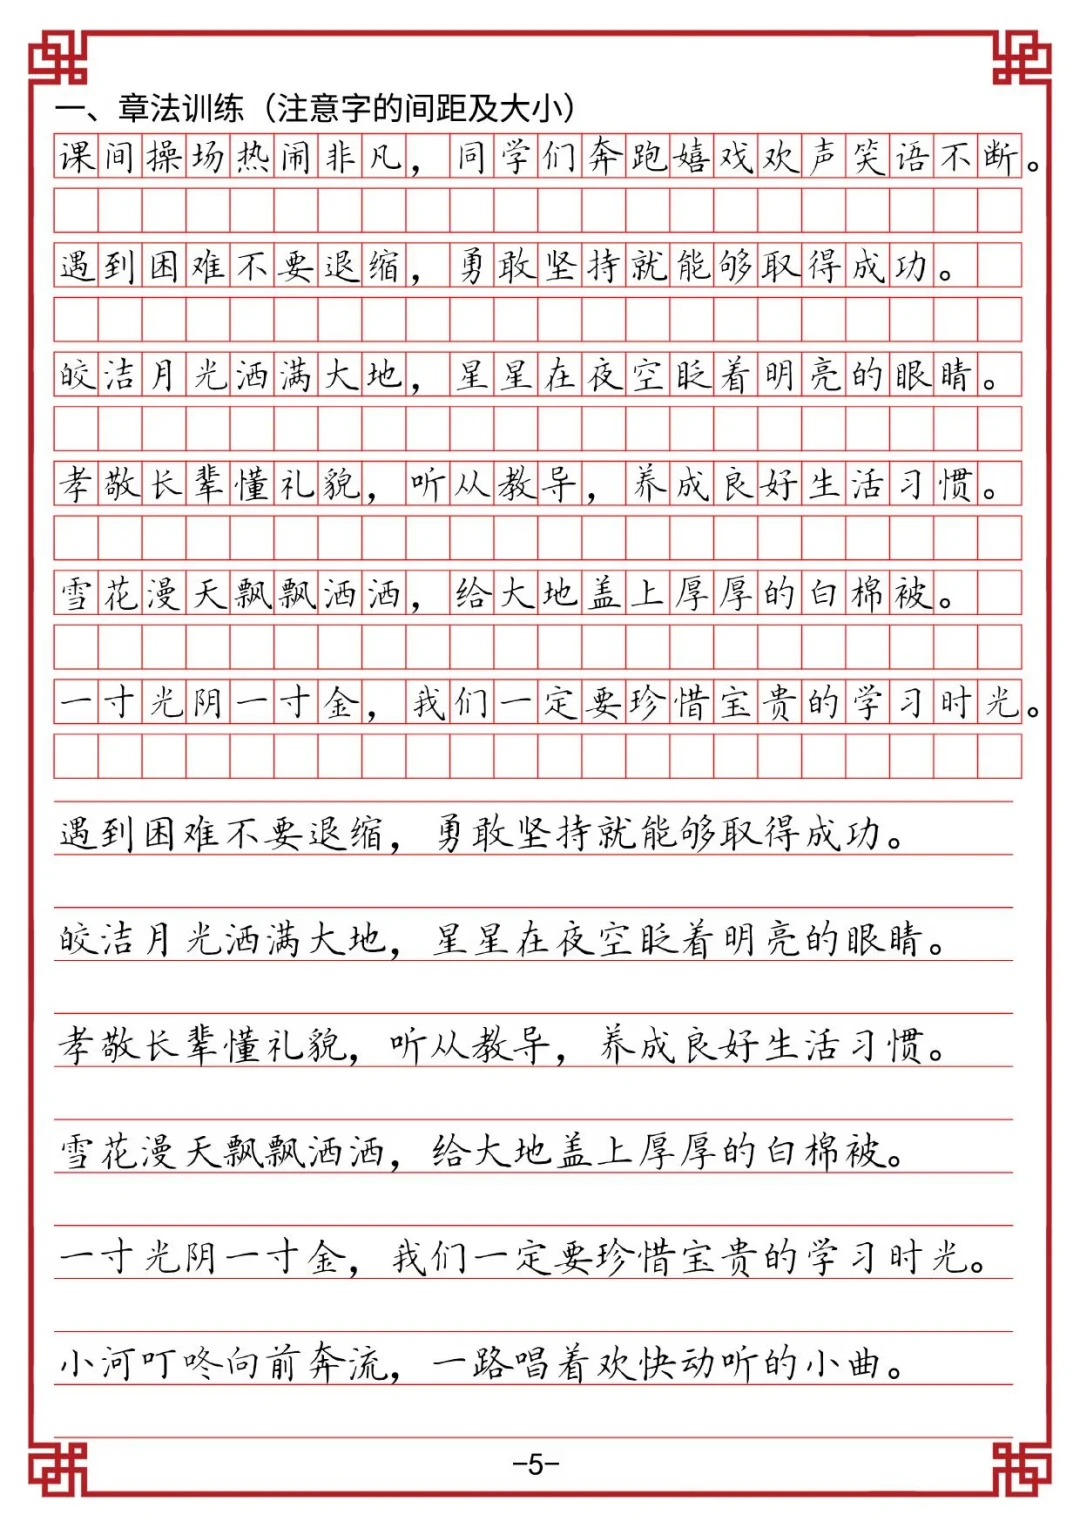 一、章法训练（注意字的间距及大小）
课间操场热闹非凡，同学们奔跑嬉戏欢声笑语不断。
遇到困难不要退缩，勇敢坚持就能够取得成功。
皎洁月光洒满大地，星星在夜空眨着明亮的眼睛。
孝敬长辈懂礼貌，听从教导，养成良好生活习惯。
雪花漫天飘飘洒洒，给大地盖上厚厚的白棉被。
一寸光阴一寸金，我们一定要珍惜宝贵的学习时光。
遇到困难不要退缩，勇敢坚持就能够取得成功。
皎洁月光洒满大地，星星在夜空眨着明亮的眼睛。
孝敬长辈懂礼貌，听从教导，养成良好生活习惯。
雪花漫天飘飘洒洒，给大地盖上厚厚的白棉被。
一寸光阴一寸金，我们一定要珍惜宝贵的学习时光。
小河叮咚向前奔流，一路唱着欢快动听的小曲。
-5-